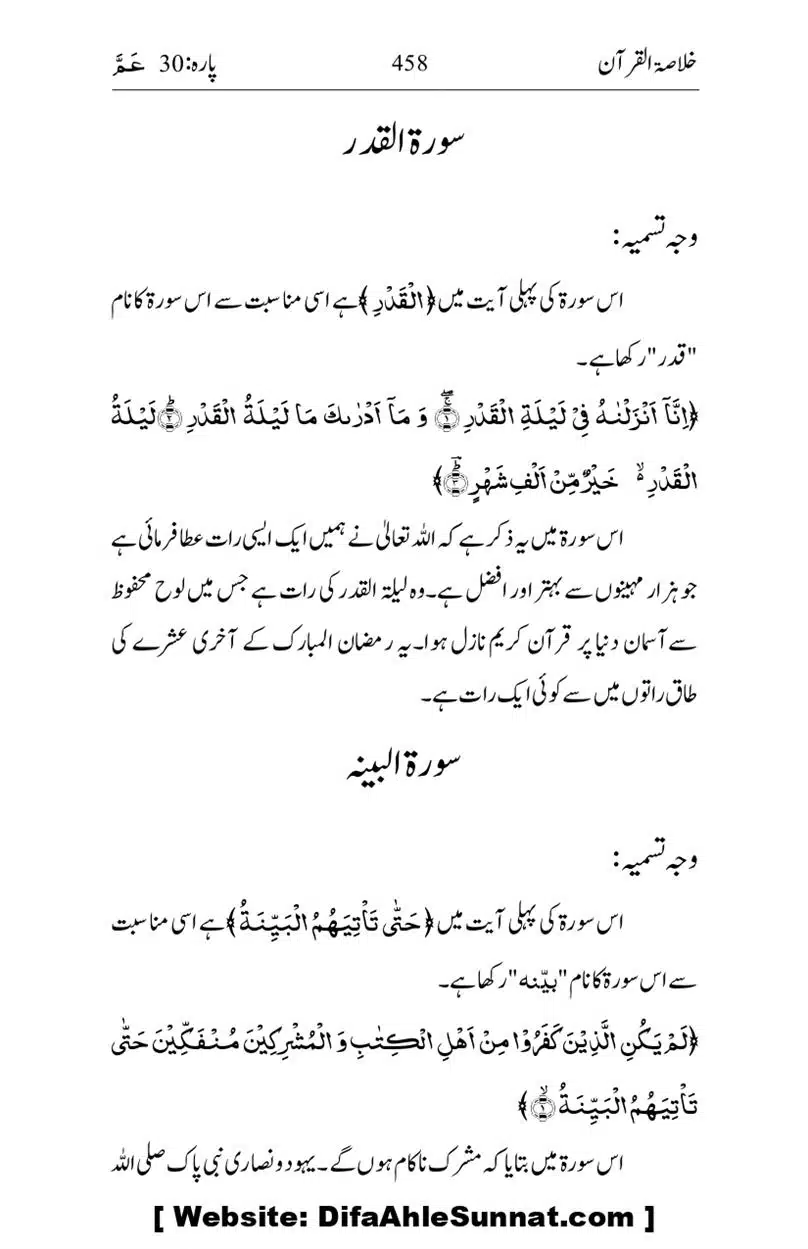 خلاصۃ القرآن 458 پارہ:30 عَمَّ
سورۃ القدر
وجہ تسمیہ:
اس سورۃ کی پہلی آیت میں ﴿الْقَدْرِ﴾ ہے اسی مناسبت سے اس سورۃ کا نام
"قدر" رکھا ہے۔
﴿اِنَّاۤ اَنْزَلْنٰهُ فِیْ لَیْلَةِ الْقَدْرِ ۝۱ۚۖ وَ مَاۤ اَدْرٰىكَ مَا لَیْلَةُ الْقَدْرِ ۝۲ؕ لَیْلَةُ
الْقَدْرِ ۙ۬ خَیْرٌ مِّنْ اَلْفِ شَهْرٍ ۝۳ؕؔ﴾
اس سورۃ میں یہ ذکر ہے کہ اللہ تعالیٰ نے ہمیں ایک ایسی رات عطا فرمائی ہے
جو ہزار مہینوں سے بہتر اور افضل ہے۔ وہ لیلۃ القدر کی رات ہے جس میں لوح محفوظ
سے آسمان دنیا پر قرآن کریم نازل ہوا۔ یہ رمضان المبارک کے آخری عشرے کی
طاق راتوں میں سے کوئی ایک رات ہے۔
سورۃ البینہ
وجہ تسمیہ:
اس سورۃ کی پہلی آیت میں ﴿حَتّٰى تَاْتِیَهُمُ الْبَیِّنَةُ﴾ ہے اسی مناسبت
سے اس سورۃ کا نام "بیّنہ" رکھا ہے۔
﴿لَمْ یَكُنِ الَّذِیْنَ كَفَرُوْا مِنْ اَهْلِ الْكِتٰبِ وَ الْمُشْرِكِیْنَ مُنْفَكِّیْنَ حَتّٰى
تَاْتِیَهُمُ الْبَیِّنَةُ ۝۱ۙ﴾
اس سورۃ میں بتایا کہ مشرک ناکام ہوں گے۔ یہود و نصاریٰ نبی پاک صلی اللہ
[ Website: DifaAhleSunnat.com ]